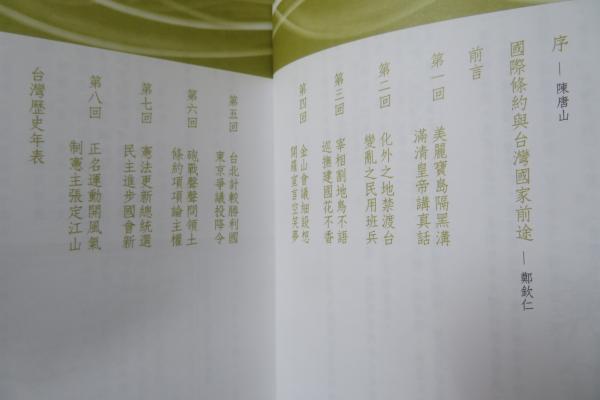 序 — 陳唐山
國際條約與台灣國家前途 — 鄭欽仁
前言
第一回 美麗寶島隔黑溝
滿清皇帝講真話
第二回 化外之地禁渡台
變亂之民用班兵
第三回 宰相割地鳥不語
巡撫建國花不香
第四回 金山會議細設想
開羅宣言空笑夢
第五回 台北計較勝利國
東京爭議投降令
第六回 砲戰聲聲問領土
條約項項論主權
第七回 憲法更新總統選
民主進步國會新
第八回 正名運動開風氣
制憲主張定江山
台灣歷史年表